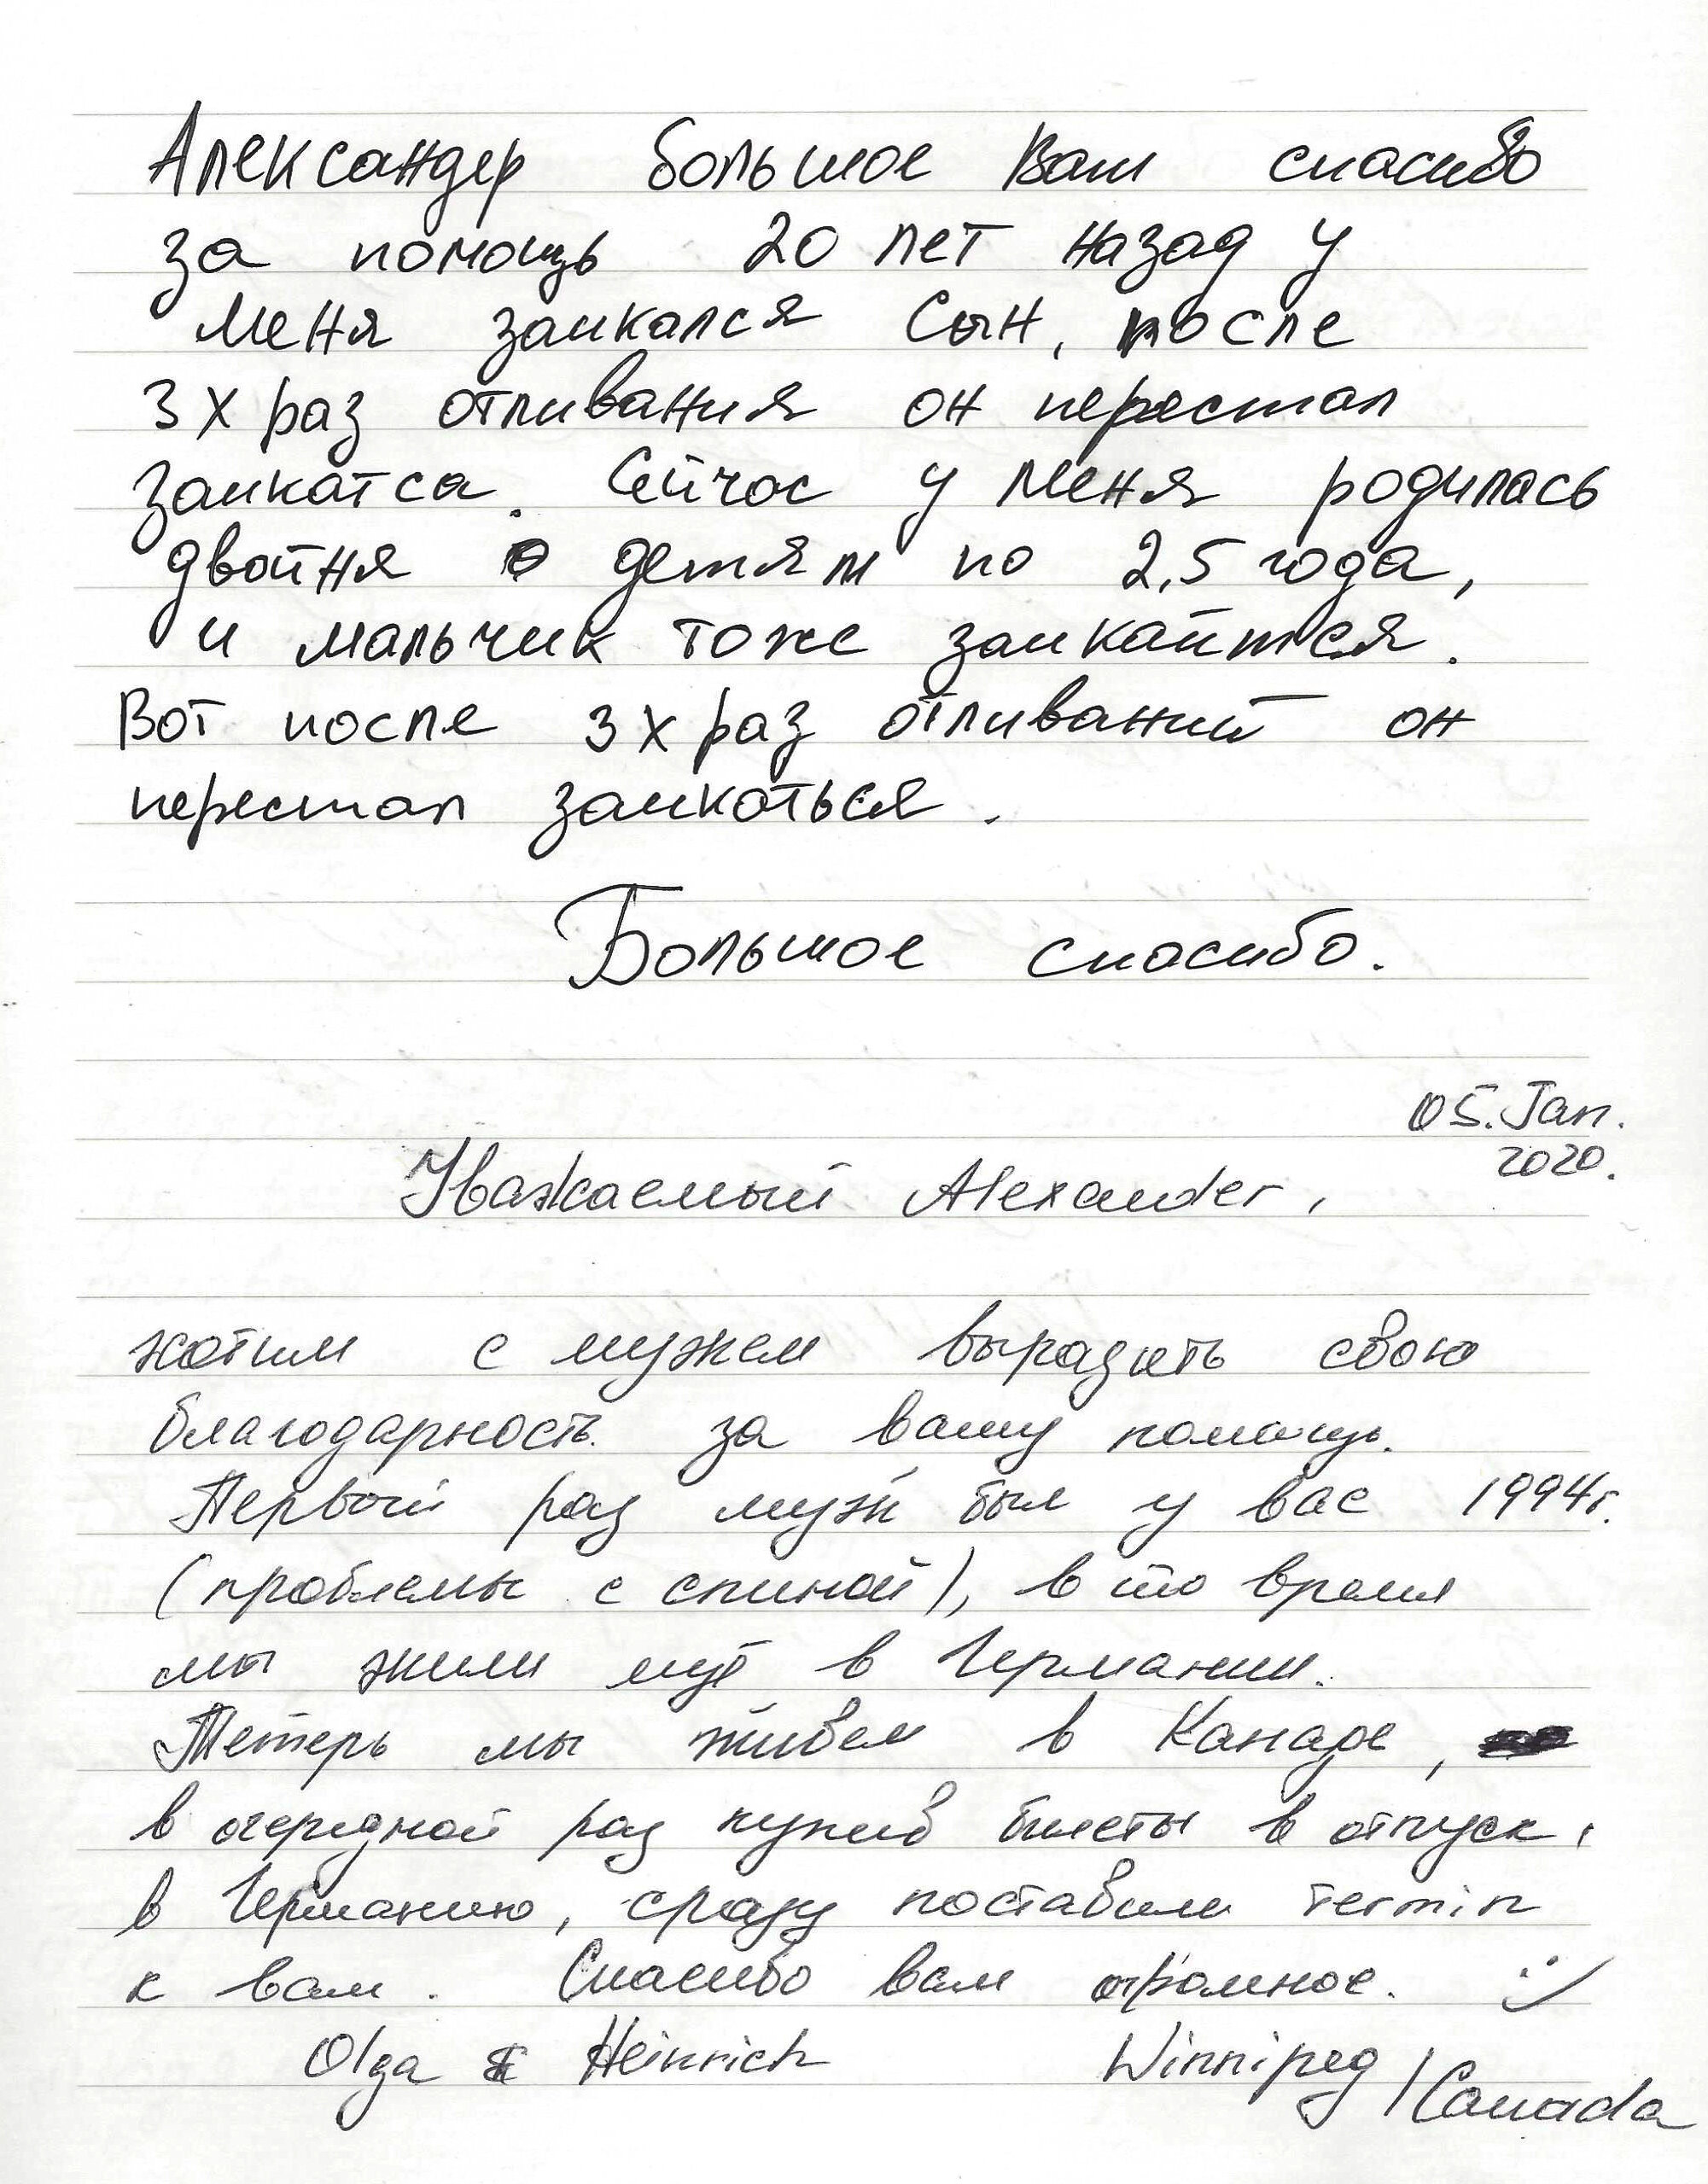 Александер большое Вам спасибо
за помощь 20 лет назад у
меня заикался Сын, после
3х раз отливания он перестал
заикатса. Сейчас у меня родилась
двойня детям по 2,5 года,
и мальчик тоже заикайтся.
Вот после 3х раз отливаний он
перестал заикаться.
Большое спасибо.
05. Jan.
2020.
Уважаемый Alexander,
хотим с мужем выразить свою
благодарность за вашу помощь.
Первый раз муж был у вас 1994г.
(проблемы с спиной), в то время
мы жили ещё в Германии.
Теперь мы живем в Канаде,
в очередной раз купив билеты в отпуск,
в Германию, сразу поставили termin
к вам. Спасибо вам огромное. :)
Olga & Heinrich Winnipeg /Canada